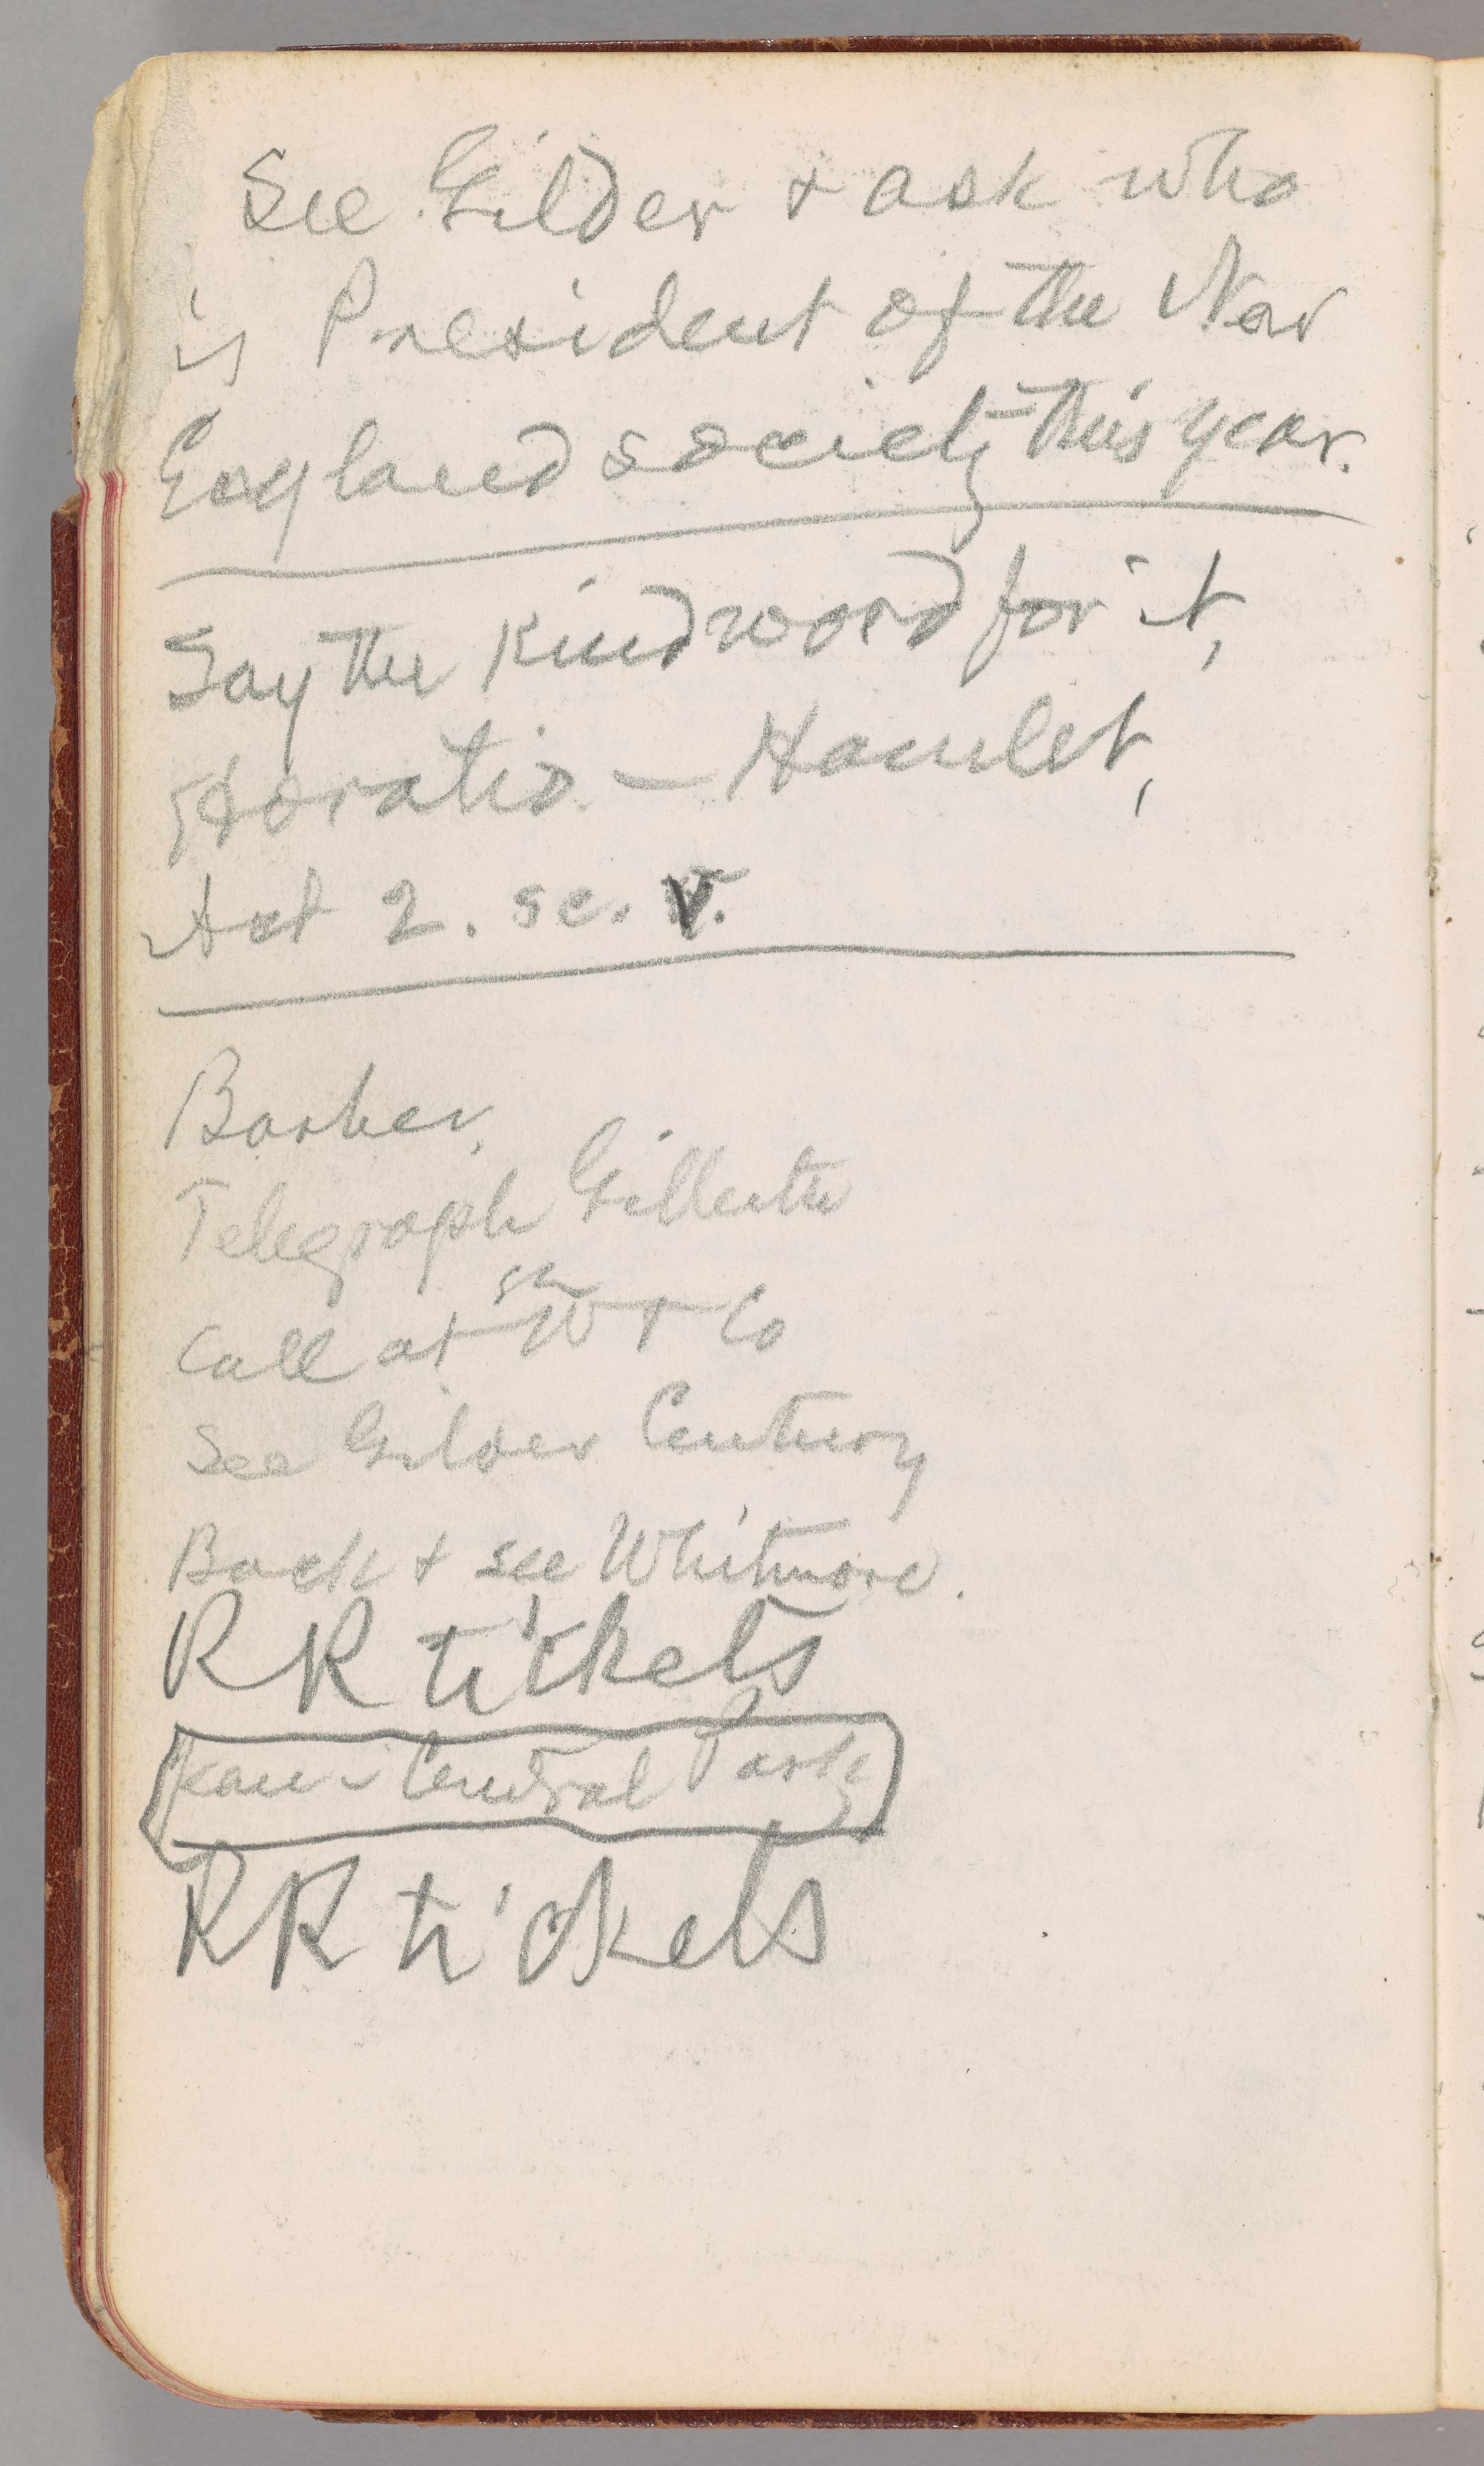 See Gilder & ask who
is President of the New
England society this year.
Say the kind word for it,
Horatio. — Hamlet,
Act 2. sc. V.
Barber.
Telegraph Gillette
Call at W & Co
See Gilder Century
Back & see Whitmore.
RR tickets
Jean - Central Park
RR tickets